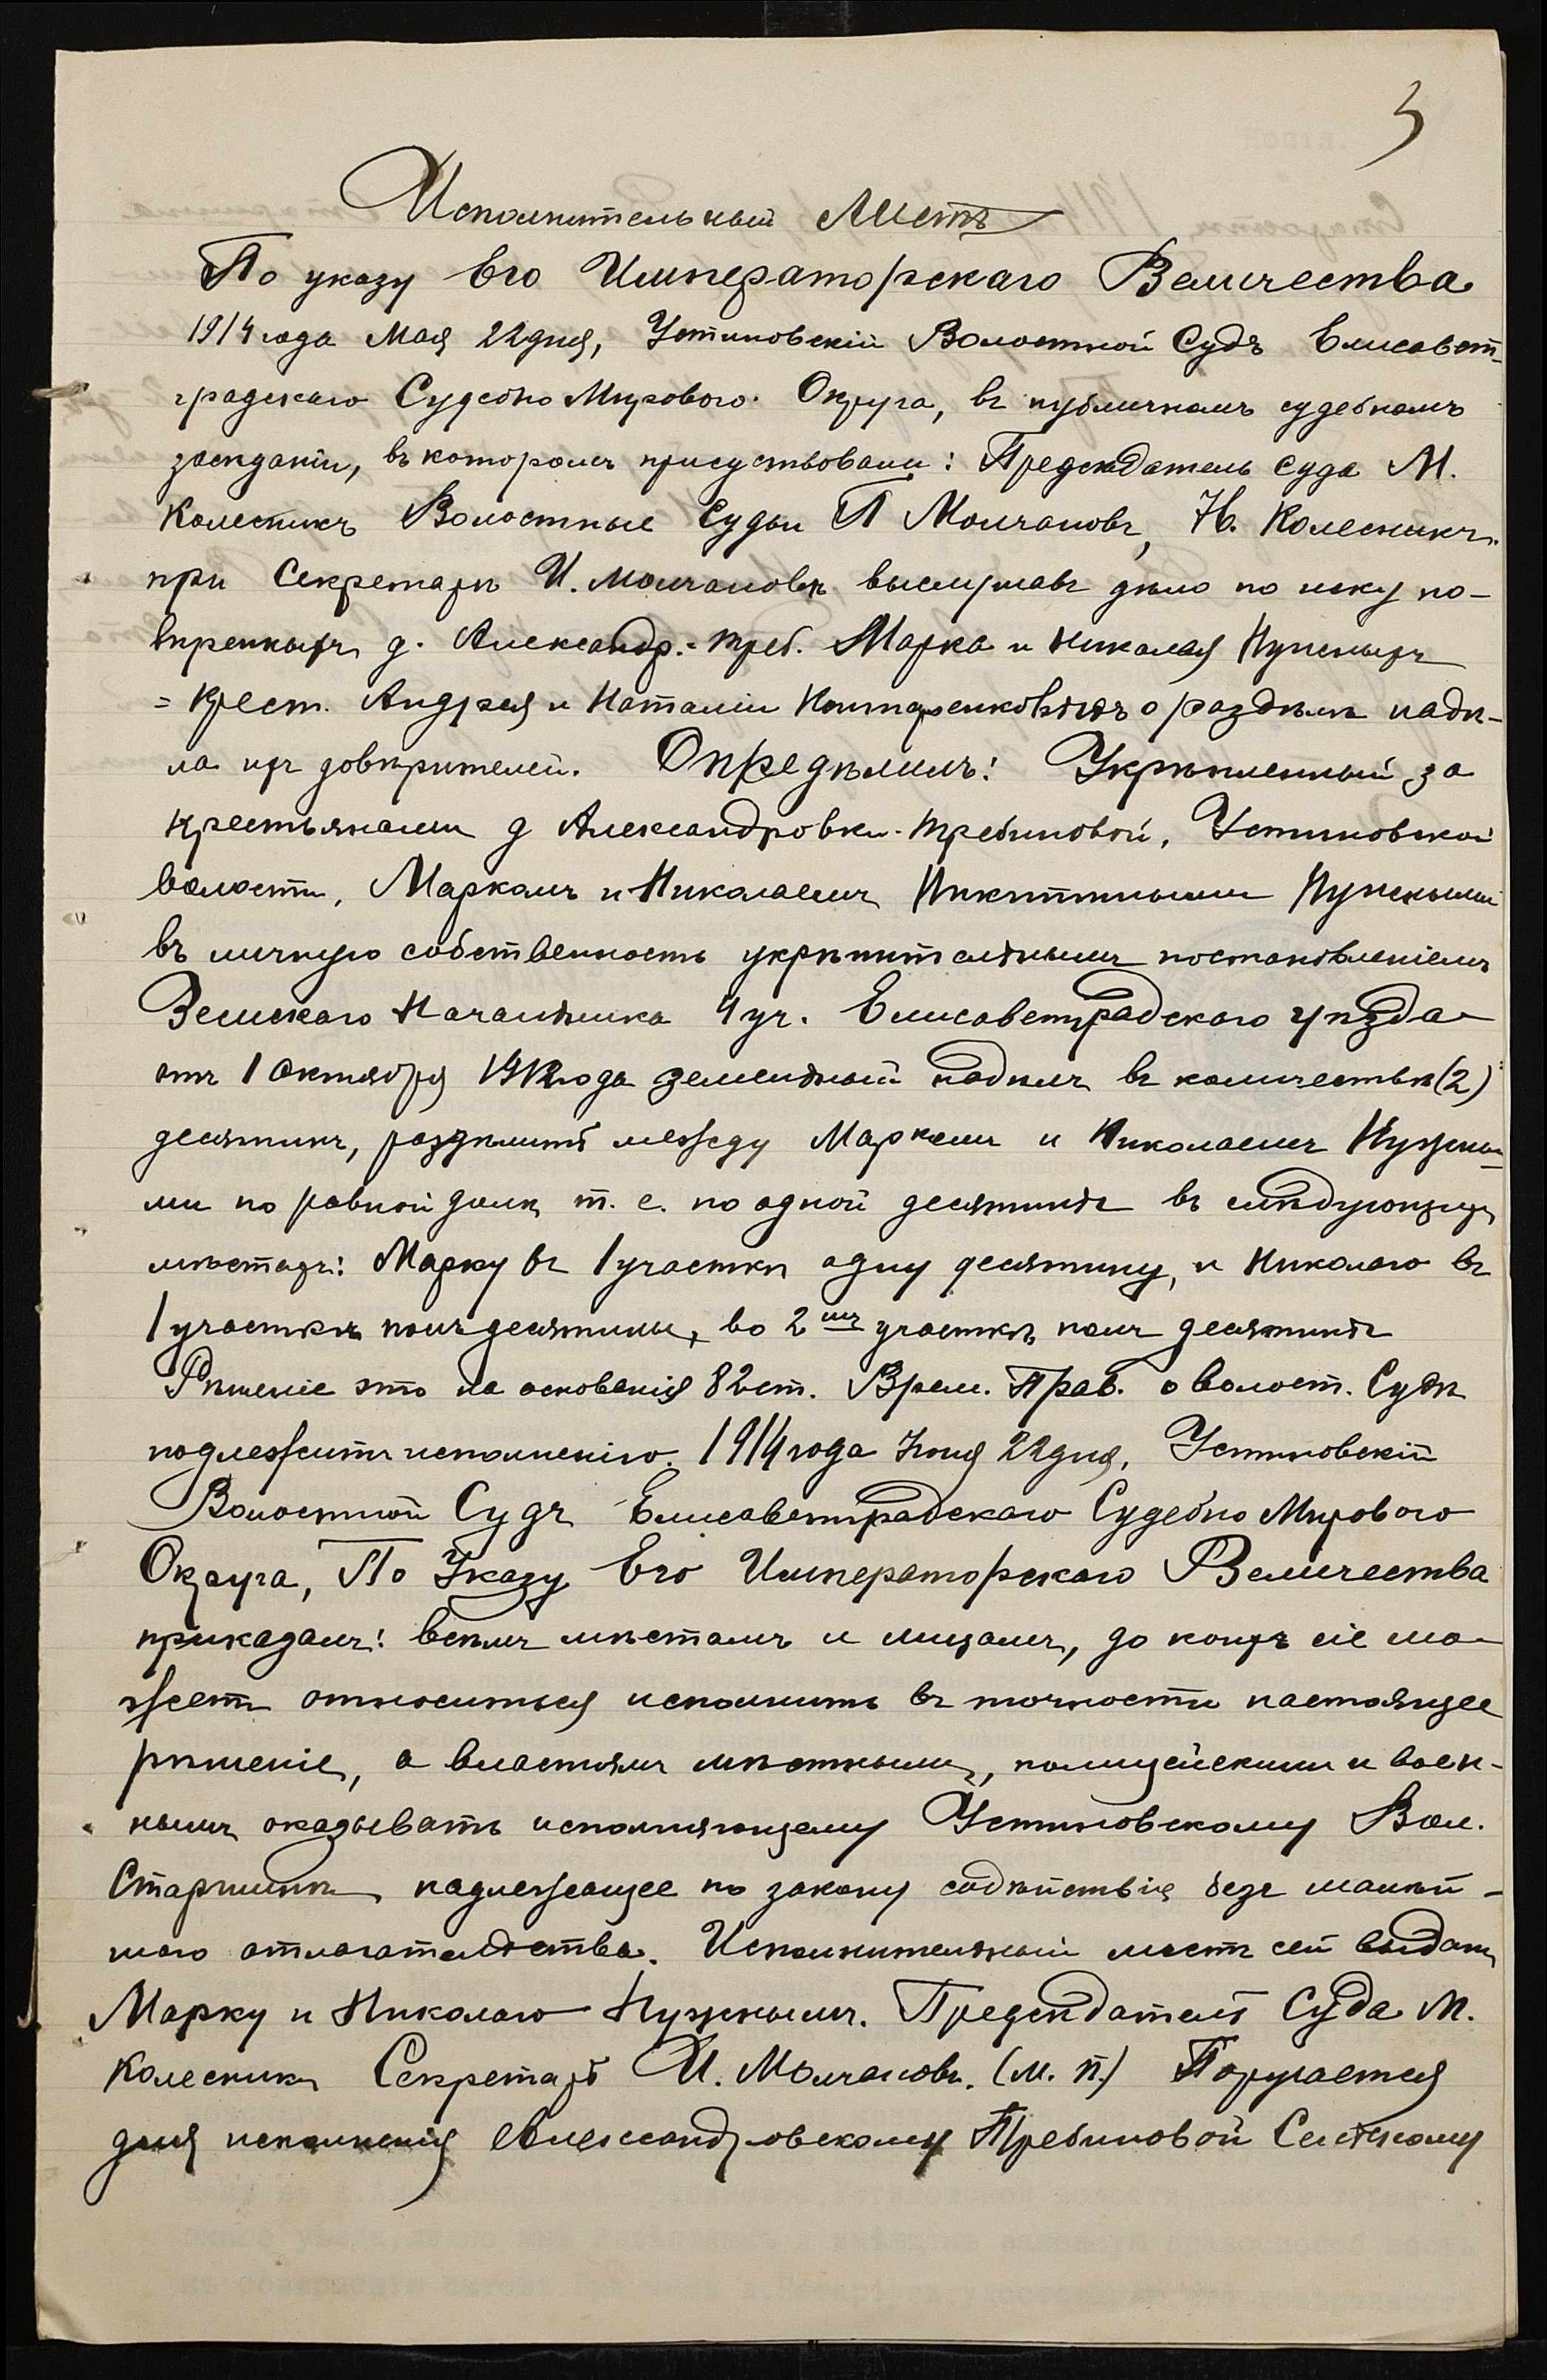 3
Исполнительный Листъ
По указу Его Императорскаго Величества
1914 года Мая 22 дня, Устиновскій Волостной Судъ Елисавет-
градскаго Судебно Мирового Округа, въ публичномъ судебномъ
засѣданіи, въ которомъ присуствовали: Предсѣдатель суда М.
Колесникъ Волостные Судьи П Молчановъ, Н. Колесникъ.
при Секретарѣ И. Молчановѣ выслушавъ дѣло по иску по-
вѣренныхъ д. Александр.-Треб. Марка и Николая
= Крест. Андрея и Наталіи о раздѣлѣ надѣ-
ла ихъ довѣрителей. Опредѣлилъ: Укрѣпленный за
крестьянами д Александровки-Требиновой, Устиновской
волости, Маркомъ и Николаемъ Никитиными
въ личную собственность укрѣпительнымъ постановленіемъ
Земскаго Начальника 4 уч. Елисаветградскаго уѣзда
отъ 1 Октября 1912 года земельный надѣлъ въ количествѣ (2)
десятинъ, раздѣлить между Маркомъ и Николаемъ
ми по равной долѣ, т. е. по одной десятинѣ въ слѣдующихъ
мѣстахъ: Марку въ 1 участкѣ одну десятину, и Николаю въ
1 участкѣ полъ десятины, во 2мъ участкѣ полъ десятинѣ
Рѣшеніе это на основанія 82 ст. Врем. Прав. о волост. Судѣ
подлежитъ исполненію. 1914 года Іюня 22 дня, Устиновскій
Волостной Судъ Елисаветградскаго Судебно Мирового
Округа, По Указу Его Императорскаго Величества
приказалъ: всѣмъ мѣстамъ и лицамъ, до коихъ сіе мо-
жетъ относиться исполнить въ точности настоящее
рѣшеніе, а властямъ мѣстнымъ, полицейскими и воен-
нымъ оказывать исполняющему Устиновскому Вол.
Старшинѣ надлежащее по закону содѣйствіе безъ малѣй-
шаго отлагательства. Исполнительный листъ сей выданъ
Марку и Николаю Предсѣдатель Суда М.
Колесникъ Секретарь И. Молчановъ. (М. П.) Поручается
для исполненія Александровскому Требиновой Сельскому